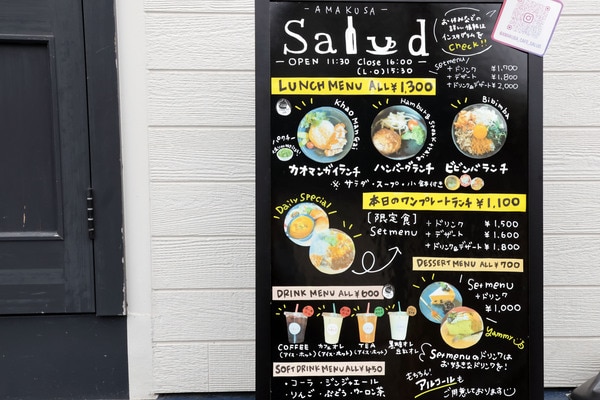 - AMAKUSA -
Salud
お休みなどの
詳しい情報は
インスタグラムを
check!!
OPEN 11:30 Close 16:00
(L・O)15:30
Setmenu
+ドリンク ¥1,700
+デザート ¥1,800
+ドリンク&デザート ¥2,000
LUNCH MENU ALL ¥1,300
Khao Man Gai
Hamburg Steak
Bibimba
パクチー
カオマンガイランチ
ハンバーグランチ
ビビンバランチ
※ サラダ・スープ・小鉢付き
Daily Special
本日のワンプレートランチ ¥1,100
[限定食]
Setmenu
+ドリンク ¥1,500
+デザート ¥1,600
+ドリンク&デザート ¥1,800
DESSERT MENU ALL ¥700
Setmenu
+ドリンク
¥1,000
yammy
DRINK MENU ALL ¥600
COFFEE
(アイス・ホット)
カフェオレ
(アイス・ホット)
TEA
(アイス・ホット)
黒糖オレ
豆乳オレ
Setmenuのドリンクは
お好きなドリンクを!
SOFT DRINK MENU ALL ¥450
・コーラ ・ジンジャエール
・りんご ・ぶどう ・ウーロン茶
もちろん!
アルコールも
ご用意しております